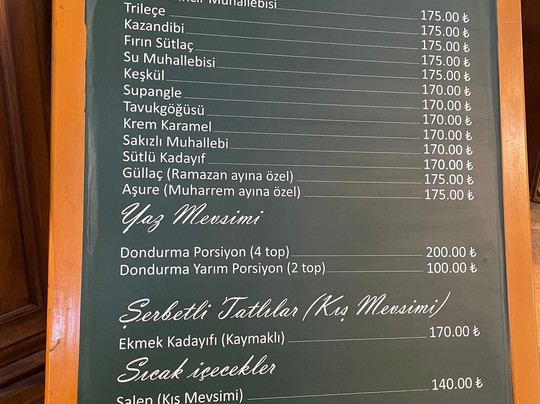 Muhallebisi 175.00 ₺
Trileçe 175.00 ₺
Kazandibi 175.00 ₺
Fırın Sütlaç 175.00 ₺
Su Muhallebisi 175.00 ₺
Keşkül 170.00 ₺
Supangle 170.00 ₺
Tavukgöğüsü 170.00 ₺
Krem Karamel 170.00 ₺
Sakızlı Muhallebi 170.00 ₺
Sütlü Kadayıf 170.00 ₺
Güllaç (Ramazan ayına özel) 175.00 ₺
Aşure (Muharrem ayına özel) 175.00 ₺
Yaz Mevsimi
Dondurma Porsiyon (4 top) 200.00 ₺
Dondurma Yarım Porsiyon (2 top) 100.00 ₺
Şerbetli Tatlılar (Kış Mevsimi)
Ekmek Kadayıfı (Kaymaklı) 170.00 ₺
Sıcak içecekler
Salep (Kış Mevsimi) 140.00 ₺